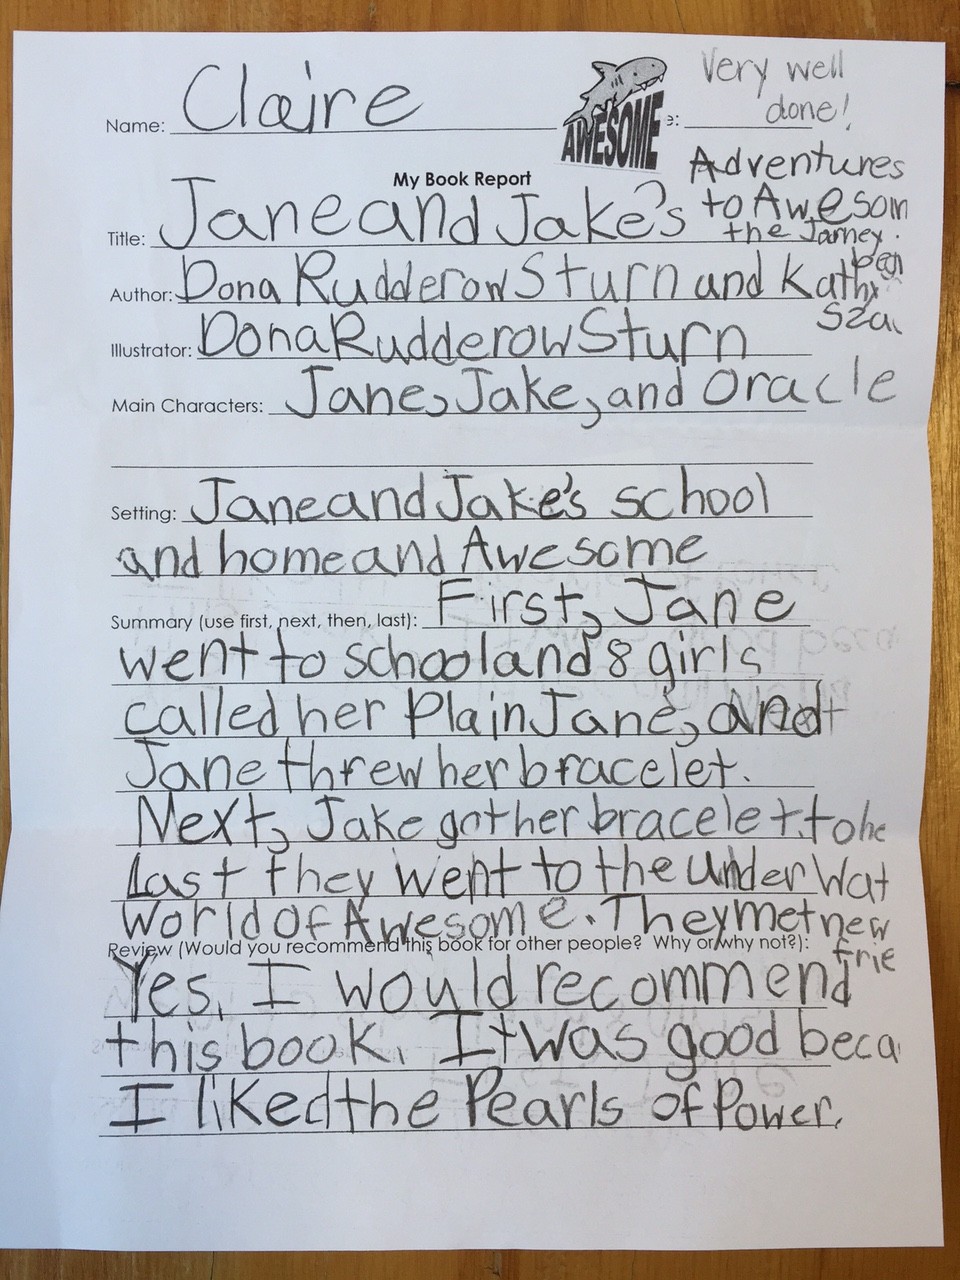 Name: Claire
AWESOME
e:
Very well
done!
My Book Report
Title: Jane and Jake's
Adventures
to Awesom
the Jarney
Author: Dona Rudderow Sturn and Kathy
Sza
Illustrator: Dona Rudderow Sturn
Main Characters: Jane, Jake, and Oracle
Setting: Jane and Jake's school
and home and Awesome
Summary (use first, next, then, last): First, Jane
went to school and 8 girls
called her Plain Jane, and
Jane threw her bracelet.
Next, Jake got her bracelet. to he
Last they went to the under Wat
World of Awesome. They met new
frie
Review (Would you recommend this book for other people? Why or why not?):
Yes, I would recommend
this book. It was good beca
I liked the Pearls of Power.